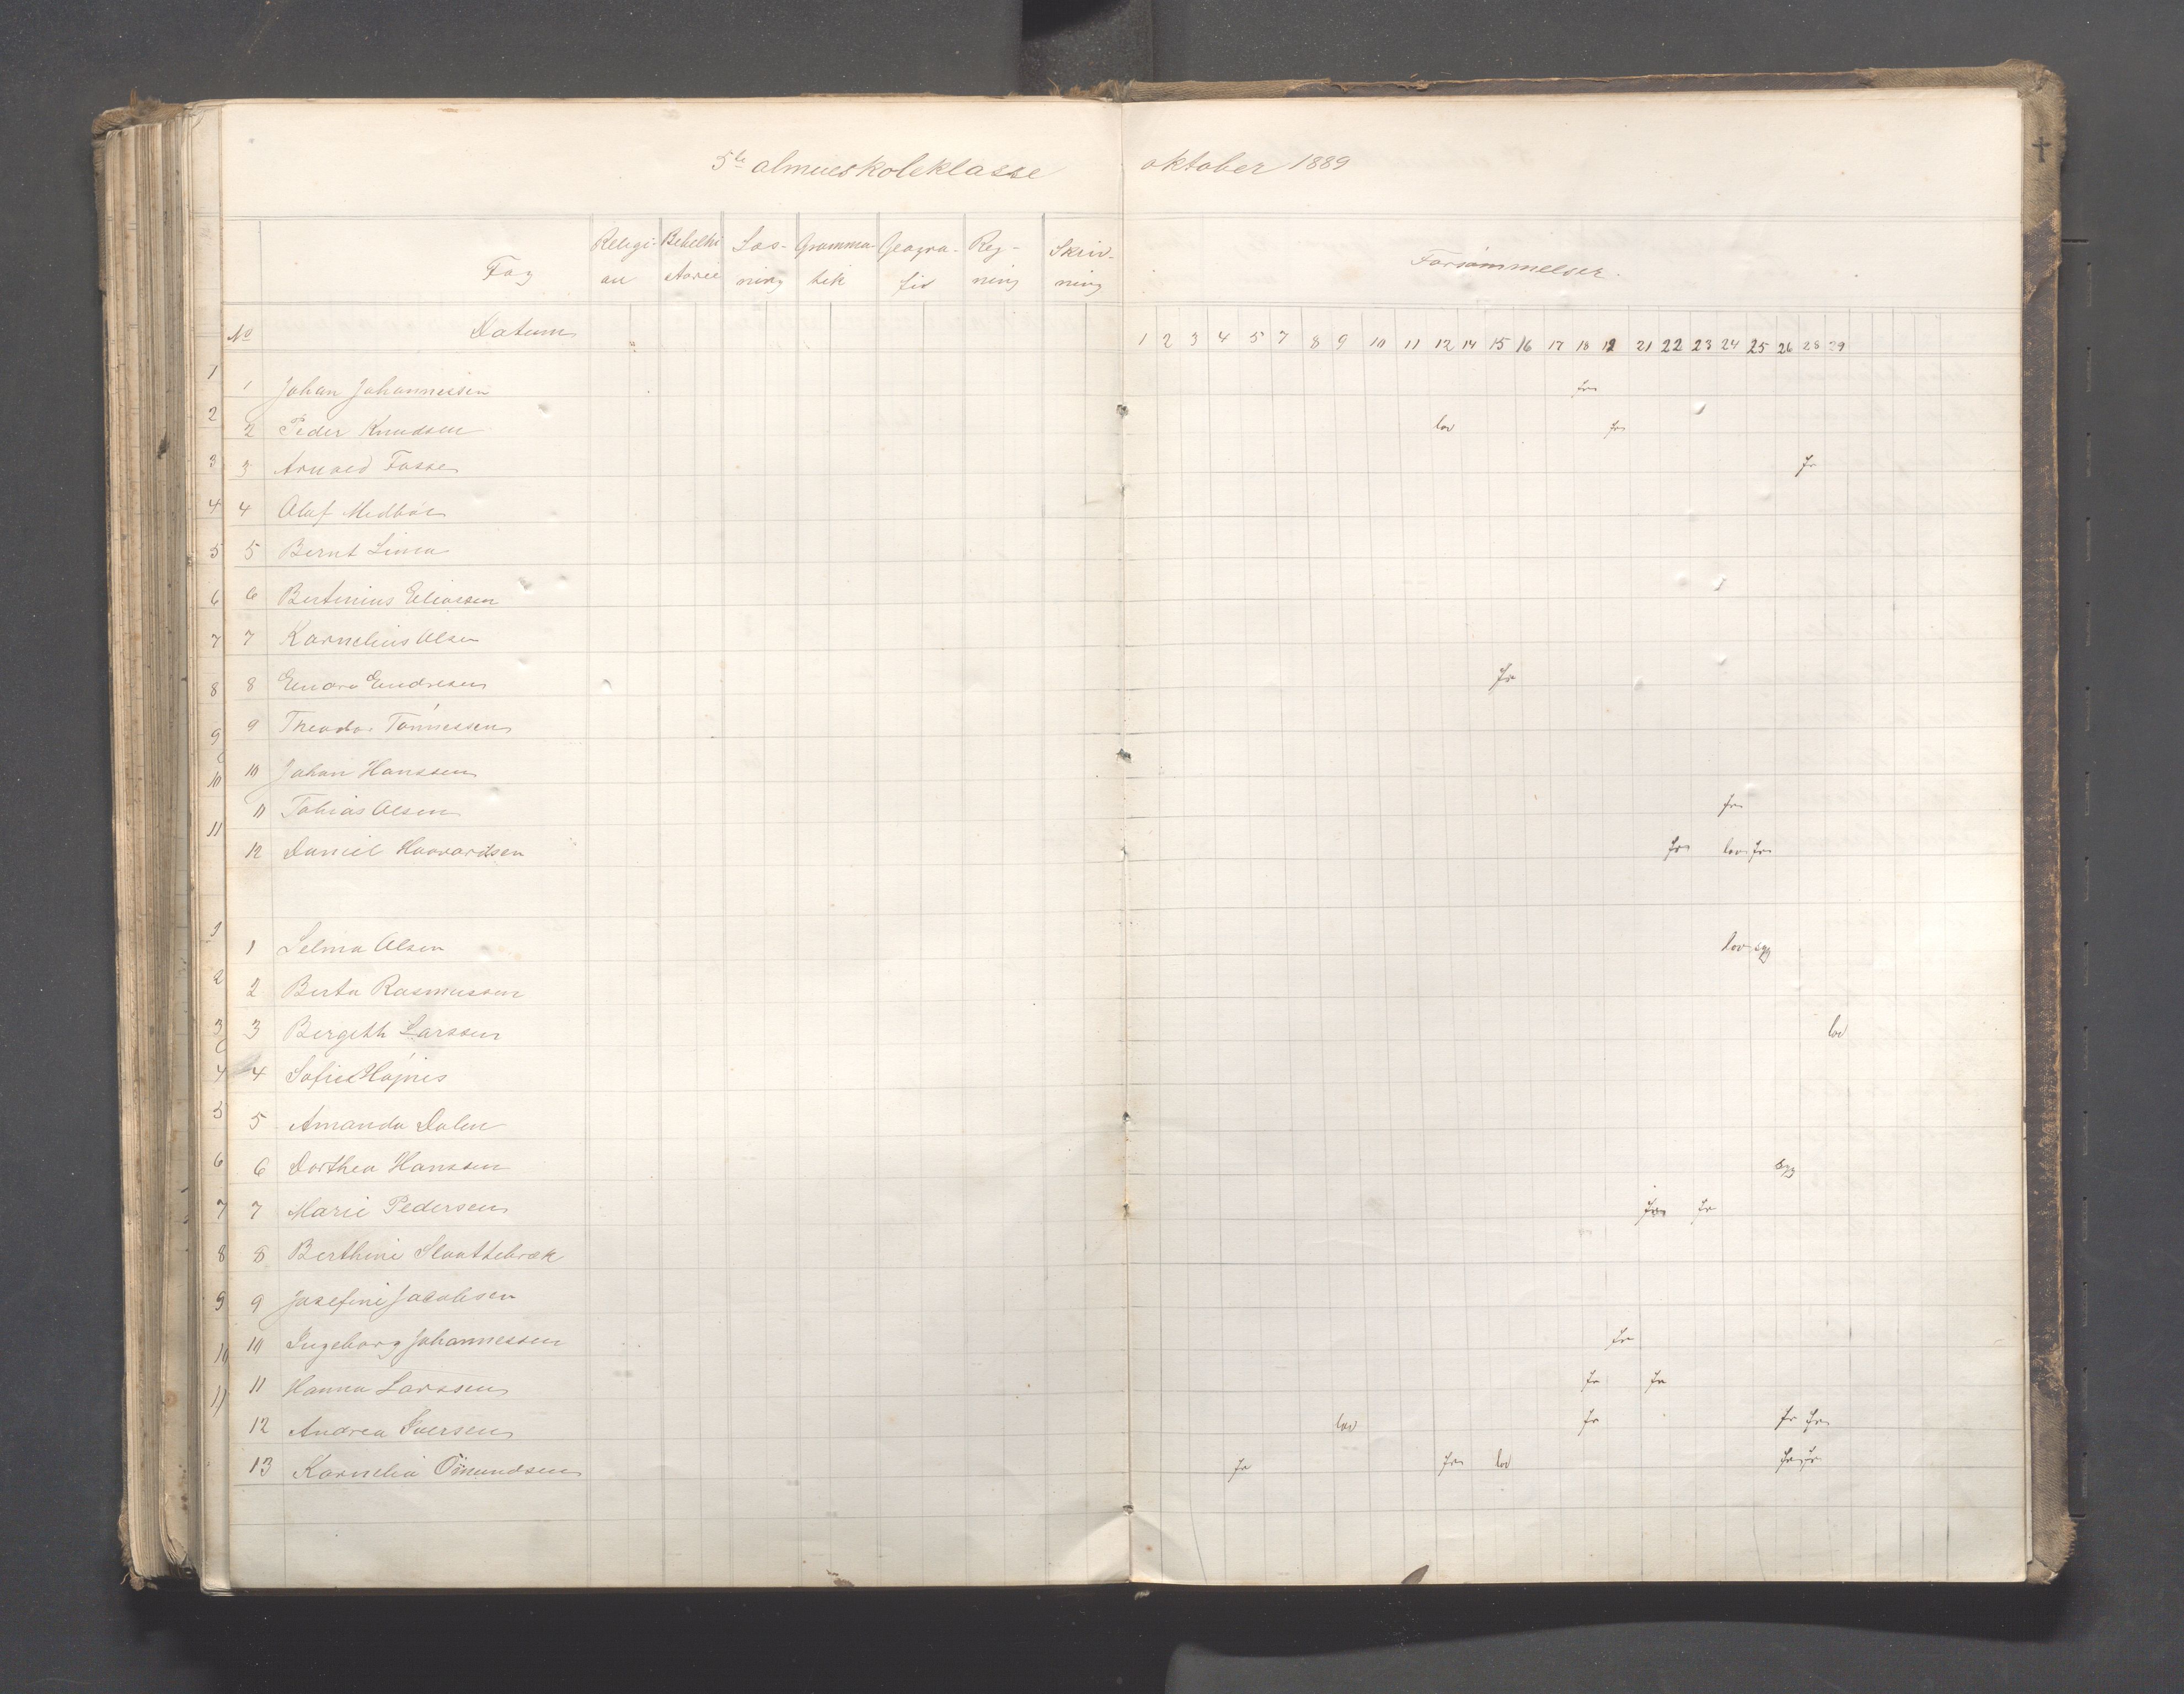 5te almueskoleklasse oktober 1889
Fag Religi- Bibelhi Læs- Gramma- Geogra- Reg- Skriv- Forsømmelser.
on storie ning tik fi ning ning
No Datum 1 2 3 4 5 7 8 9 10 11 12 14 15 16 17 18 19 21 22 23 24 25 26 28 29
1 1 Johan Johannessen fr
2 2 Peder Knudsen lov fr
3 3 Arnold Fosse fr
4 4 Oluf Medbøe
5 5 Bernt Lima
6 6 Bertinius Eliassen
7 7 Kornelius Olsen
8 8 Endre Endresen fr
9 9 Theodor Tönnessen
10 10 Johan Hanssen
11 Tobias Olsen fr
11 12 Daniel Haavardsen fr lov fr
1 1 Selma Olsen lov syg
2 2 Berta Rasmussen
3 3 Bergith Larssen lov
4 4 Sofie Højnes
5 5 Amanda Dalen
6 6 Dorthea Hanssen syg
7 7 Marie Pedersen fr fr
8 8 Berthine Slaattebræk
9 9 Josefine Jacobsen
10 10 Ingeborg Johannessen fr
11 11 Hanna Larssen fr fr
12 Andrea Iversen lov fr fr fr
13 Kornelia Ömundsen fr fr lov fr fr